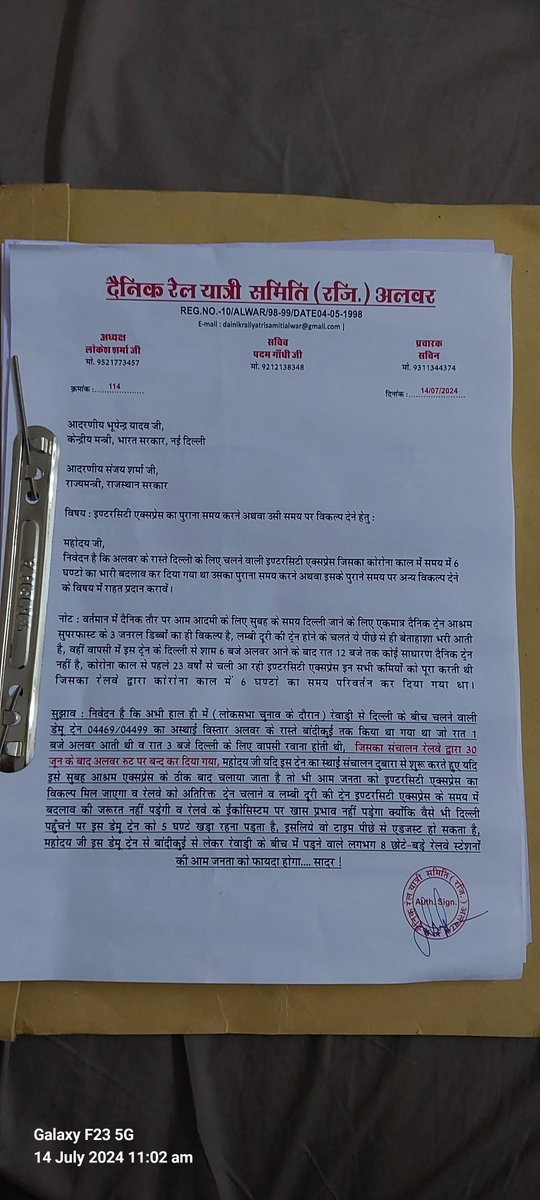 दैनिक रेल यात्री समिति (रजि.) अलवर
REG.NO.-10/ALWAR/98-99/DATE04-05-1998
E-mail : dainikrailyatrisamitialwar@gmail.com |
अध्यक्ष
लोकेश शर्मा जी
मो. 9521773457
सचिव
पदम गाँधी जी
मो. 9212138348
प्रचारक
सचिन
मो. 9311344374
क्रमांक :...114...
दिनांक :...14/07/2024...
आदरणीय भूपेन्द्र यादव जी,
केन्द्रीय मन्त्री, भारत सरकार, नई दिल्ली
आदरणीय संजय शर्मा जी,
राज्यमन्त्री, राजस्थान सरकार
विषय : इण्टरसिटी एक्सप्रेस का पुराना समय करने अथवा उसी समय पर विकल्प देने हेतु :
महोदय जी,
निवेदन है कि अलवर के रास्ते दिल्ली के लिए चलने वाली इण्टरसिटी एक्सप्रेस जिसका कोरोना काल में समय में 6
घण्टों का भारी बदलाव कर दिया गया था उसका पुराना समय करने अथवा इसके पुराने समय पर अन्य विकल्प देने
के विषय में राहत प्रदान करावें।
नोट : वर्तमान में दैनिक तौर पर आम आदमी के लिए सुबह के समय दिल्ली जाने के लिए एकमात्र दैनिक ट्रेन आश्रम
सुपरफास्ट के 3 जनरल डिब्बों का ही विकल्प है, लम्बी दूरी की ट्रेन होने के चलते ये पीछे से ही बेतहाशा भरी आती
है, वहीं वापसी में इस ट्रेन के दिल्ली से शाम 6 बजे अलवर आने के बाद रात 12 बजे तक कोई साधारण दैनिक ट्रेन
नहीं है, कोरोना काल से पहले 23 वर्षों से चली आ रही इण्टरसिटी एक्सप्रेस इन सभी कमियों को पूरा करती थी
जिसका रेलवे द्वारा कोरोना काल में 6 घण्टों का समय परिवर्तन कर दिया गया था।
सुझाव : निवेदन है कि अभी हाल ही में ( लोकसभा चुनाव के दौरान ) रेवाड़ी से दिल्ली के बीच चलने वाली
डेमू ट्रेन 04469/04499 का अस्थाई विस्तार अलवर के रास्ते बांदीकुई तक किया था गया था जो रात 1
बजे अलवर आती थी व रात 3 बजे दिल्ली के लिए वापसी रवाना होती थी, जिसका संचालन रेलवे द्वारा 30
जून के बाद अलवर रूट पर बन्द कर दिया गया, महोदय जी यदि इस ट्रेन का स्थाई संचालन दुबारा से शुरू करते हुए यदि
इसे सुबह आश्रम एक्सप्रेस के ठीक बाद चलाया जाता है तो भी आम जनता को इण्टरसिटी एक्सप्रेस का
विकल्प मिल जाएगा व रेलवे को अतिरिक्त ट्रेन चलाने व लम्बी दूरी की ट्रेन इण्टरसिटी एक्सप्रेस के समय में
बदलाव की जरूरत नहीं पड़ेगी व रेलवे के ईकोसिस्टम पर खास प्रभाव नहीं पड़ेगा क्योंकि वैसे भी दिल्ली
पहुँचने पर इस डेमू ट्रेन को 5 घण्टे खड़ा रहना पड़ता है, इसलिये वो टाइम पीछे से एडजस्ट हो सकता है,
महोदय जी इस डेमू ट्रेन से बांदीकुई से लेकर रेवाड़ी के बीच में पड़ने वाले लगभग 8 छोटे-बड़े रेलवे स्टेशनों
की आम जनता को फायदा होगा.... सादर !
दैनिक रेल यात्री समिति (रजि.) अलवर
Auth. Sign.
Galaxy F23 5G
14 July 2024 11:02 am